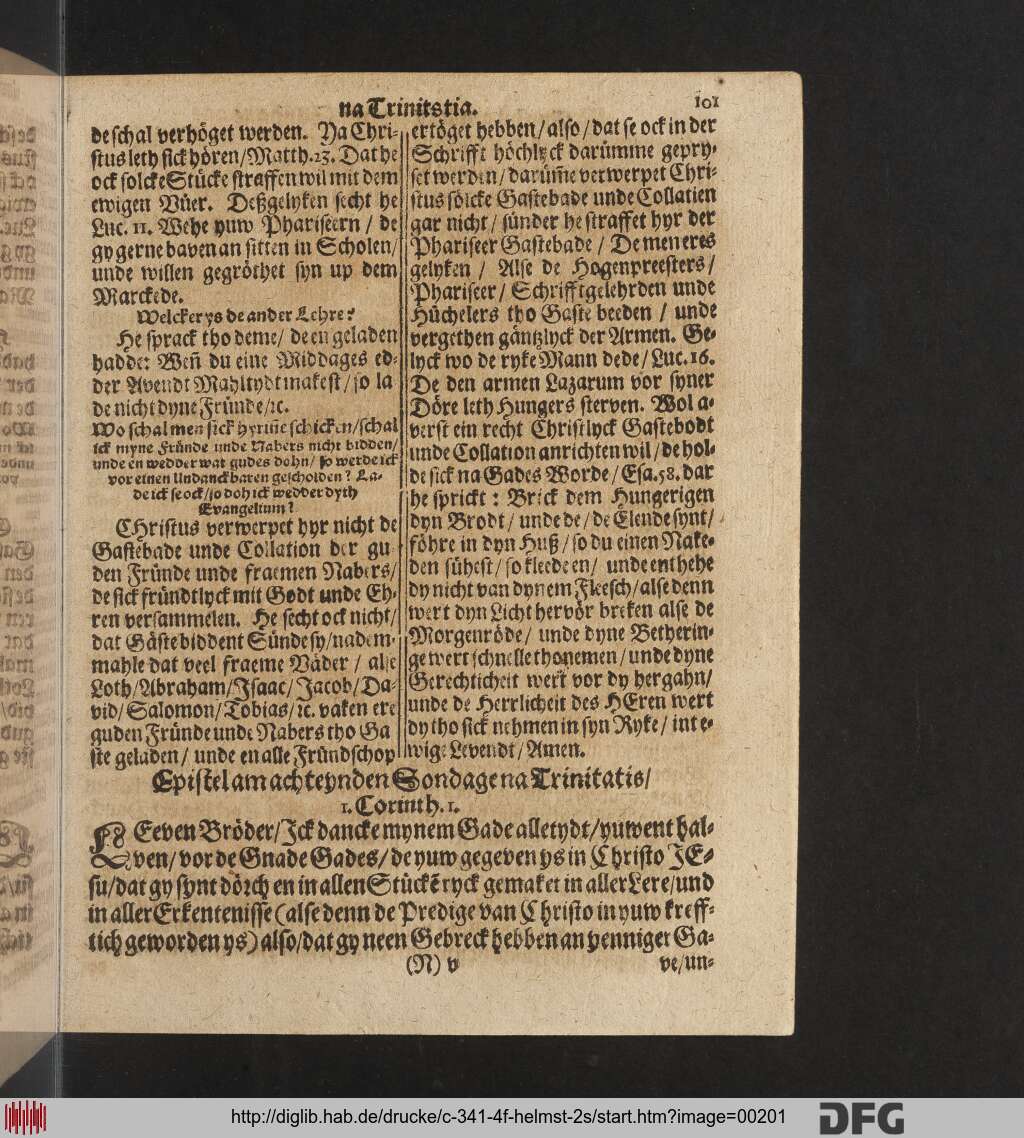 na Trinitstia.
101
de schal verhöget werden. Na Chri-
stus leth sick hören/Matth.23. Dat he
ock solcke Stücke straffen wil mit dem
ewigen Vüer. Deßgelyken secht he
Luc. 11. Wehe yuw Phariseern / de
gy gerne baven an sitten in Scholen/
unde willen gegröthet syn up dem
Marckede.
Welcker ys de ander Lehre?
He sprack tho deme/ de en geladen
hadde: Weñ du eine Middages ed-
der Avendt Mahltydt makest/ so la
de nicht dyne Fründe/ꝛc.
Wo schal men sick hyriñe schicken/schal
ick myne Fründe unde Nabers nicht bidden/
unde en wedder wat gudes dohn/ so werde ick
vor einen Undanckbaren gescholden? La-
de ick se ock/so doh ick wedder dyth
Evangelium?
CHristus verwerpet hyr nicht de
Gastebade unde Collation der gu
den Fründe unde fraemen Nabers/
de sick fründtlyck mit Godt unde Eh-
ren versammelen. He secht ock nicht/
dat Gäste biddent Sünde sy/nadem-
mahle dat veel fraeme Väder / alse
Loth/Abraham/Isaac/Jacob/Da-
vid/Salomon/Tobias/ꝛc. vaken ere
guden Fründe unde Nabers tho Ga
ste geladen/ unde en alle Fründschop
ertöget hebben/also/dat se ock in der
Schrifft höchlyck darümme gepry-
set werden/darüm̃e verwerpet Chri-
stus sölcke Gastebade unde Collatien
gar nicht/ sünder he straffet hyr der
Phariseer Gastebade / De men eres
gelyken / Alse de Hogenpreesters/
Phariseer/ Schrifftgelehrden unde
Hüchelers tho Gaste beeden / unde
vergethen gäntzlyck der Armen. Ge-
lyck wo de ryke Mann dede/Luc.16.
De den armen Lazarum vor syner
Döre leth Hungers sterven. Wol a-
verst ein recht Christlyck Gastebodt
unde Collation anrichten wil/de hol-
de sick na Gades Worde/Esa.58.dar
he sprickt: Brick dem Hungerigen
dyn Brodt/ unde de/de Elende synt/
föhre in dyn Huß/so du einen Nake-
den sühest/so kleede en/ unde enthehe
dy nicht van dynem Fleesch/alse denn
wert dyn Licht hervör breken alse de
Morgenröde/ unde dyne Betherin-
ge wert schnelle thonemen/unde dyne
Gerechticheit wert vor dy hergahn/
unde de Herrlicheit des HEren wert
dy tho sick nehmen in syn Ryke/int e-
wige Levendt/Amen.
Epistel am achteynden Sondage na Trinitatis/
1. Corinth. 1.
LEeven Bröder/Ick dancke mynem Gade alletydt/yuwent hal-
ven/vor de Gnade Gades/de yuw gegeven ys in Christo JE-
su/dat gy synt dörch en in allen Stückẽ ryck gemaket in aller Lere/und
in aller Erkentenisse (alse denn de Predige van Christo in yuw kreff-
tich geworden ys) also/dat gy neen Gebreck hebben an yenniger Ga-
(N) v
ve/un-
http://diglib.hab.de/drucke/c-341-4f-helmst-2s/start.htm?image=00201
DFG